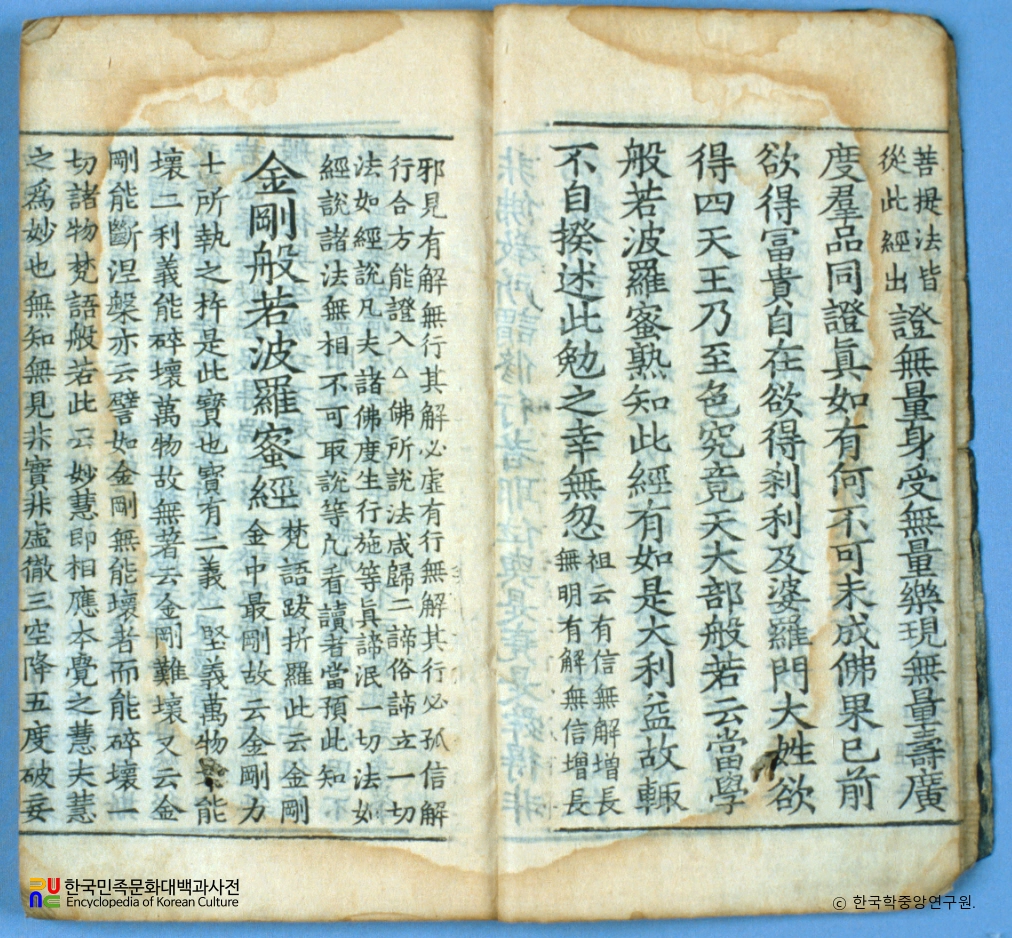 菩提法皆
從此經出
證無量身受無量樂現無量壽廣
度羣品同證眞如有何不可未成佛果已前
欲得冨貴自在欲得刹利及婆羅門大姓欲
得四天王乃至色究竟天大部般若云當學
般若波羅蜜熟知此經有如是大利益故輙
不自揆述此勉之幸無忽
祖云有信無解增長
無明有解無信增長
邪見有解無行其解必虛有行無解其行必孤信解
行合方能證入△佛所說法咸歸二諦俗諦立一切
法如經說凡夫諸佛度生行施等眞諦泯一切法如
經說諸法無相不可取說等凢看讀者當預此知
金剛般若波羅蜜經
梵語跋折羅此云金剛
金中最剛故云金剛力
士所執之杵是此寶也寶有二義一堅義萬物能
壞二利義能碎壞萬物故無著云金剛難壞又云金
剛能斷涅槃亦云譬如金剛無能壞者而能碎壞一
切諸物梵語般若此云妙慧即相應本覺之慧夫慧
之爲妙也無知無見非實非虛徹三空降五度破妄
한국민족문화대백과사전
Encyclopedia of Korean Culture
ⓒ 한국학중앙연구원.